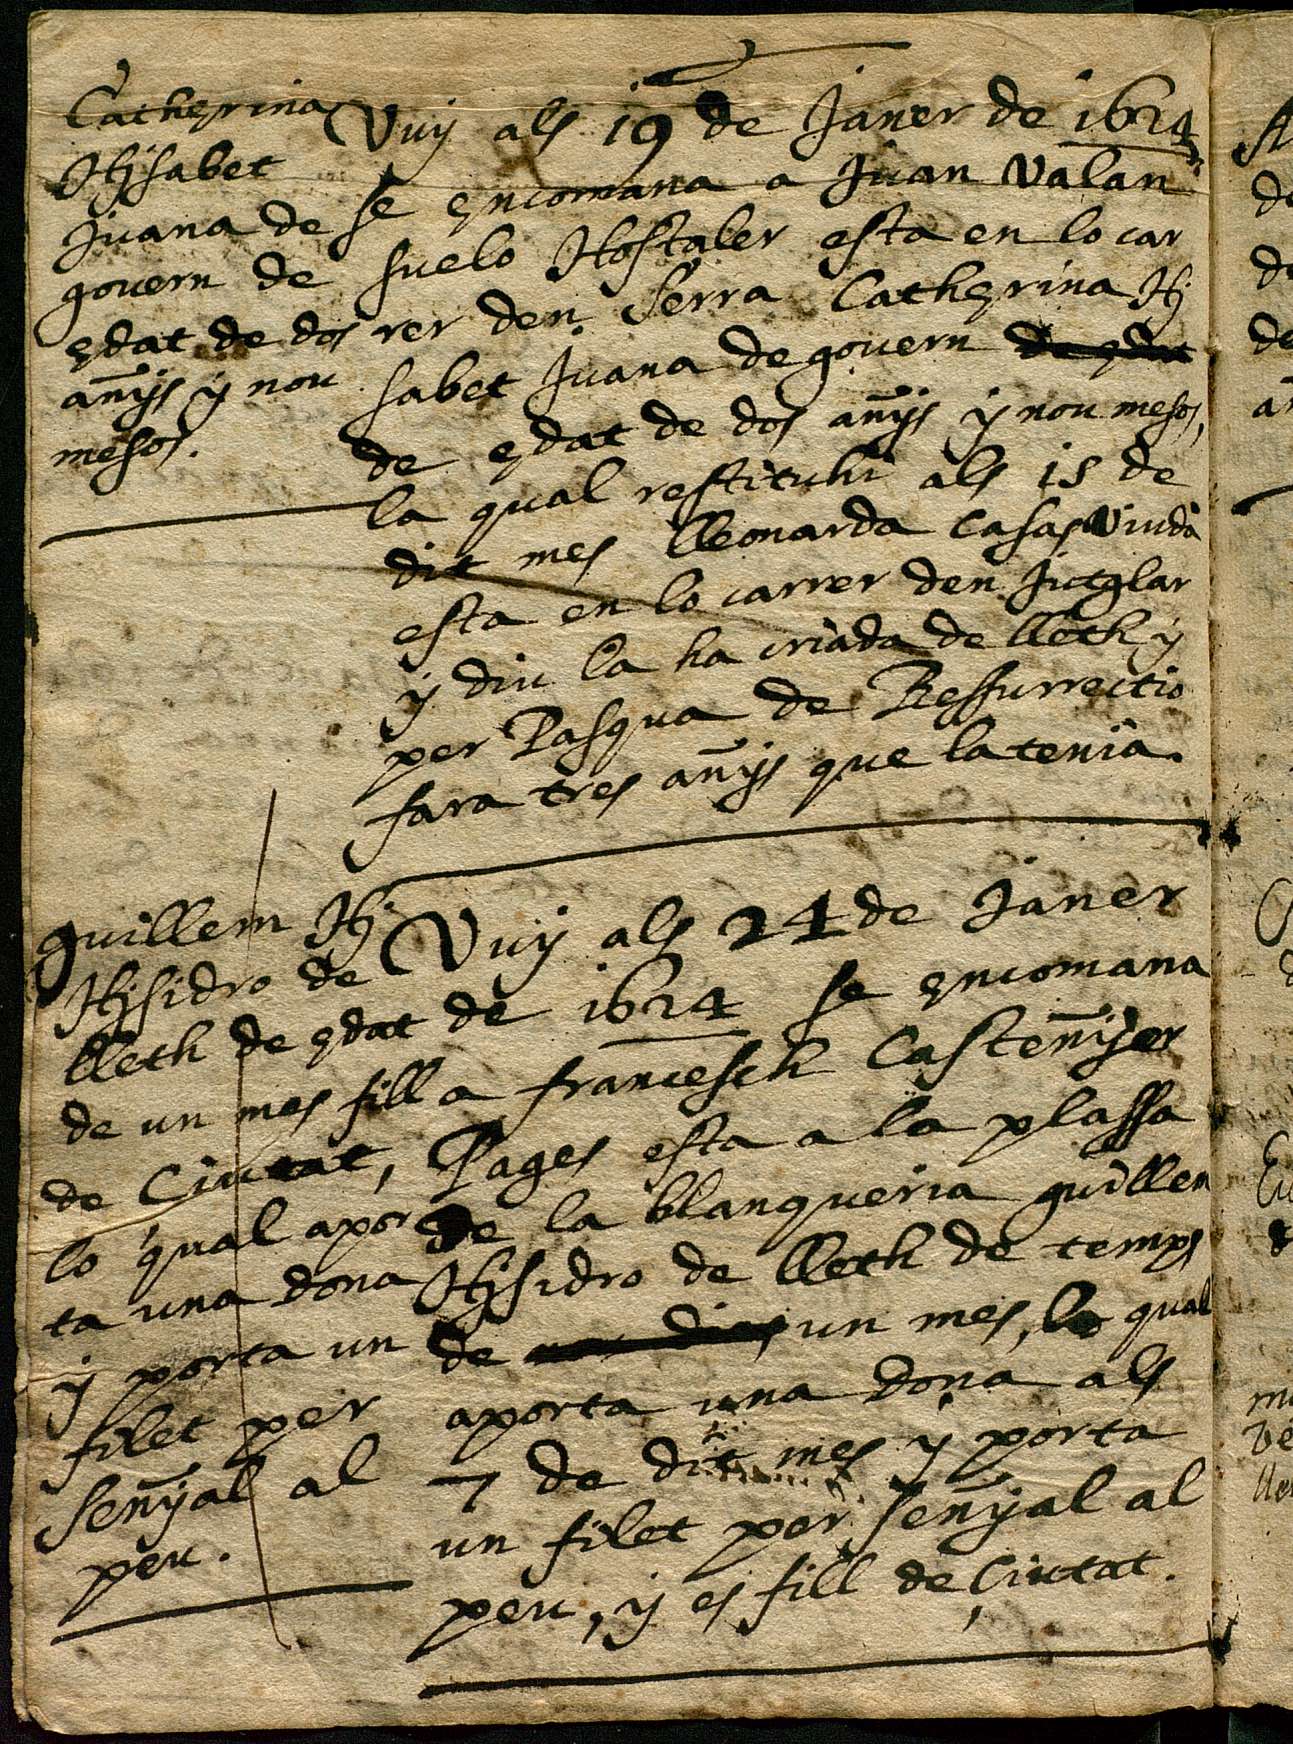 Catherina
Hisabet
Juana de
govern de
edat de dos
añys y nou
mesos.
Vuy als 19 de Janer de 1624
se encomana a Juan Valan
suelo Hostaler esta en lo car
rer den Serra Catherina Hi
sabet Juana de govern de edat
de edat de dos añys y nou mesos,
la qual restituhi als 18 de
dit mes lleonarda Casas Viuda
esta en lo carrer den Jutglar
y diu la ha criada de lleth y
per Pasqua de Ressurrectio
fara tres añys que la tenia.
guillem Hi
Hisidro de
lleth de edat
de un mes fill
de Ciutat,
lo qual apor
ta una dona
y porta un
filet per
señyal al
peu.
Vuy als 24 de Janer
de 1624 se encomana
a francesch Casteñyer
Pages esta a la plassa
de la blanqueria guillem
Hisidro de lleth de temps
de un mes, lo qual
aporta una dona als
7 de dit mes y porta
un filet per señyal al
peu, y es fill de Ciutat.